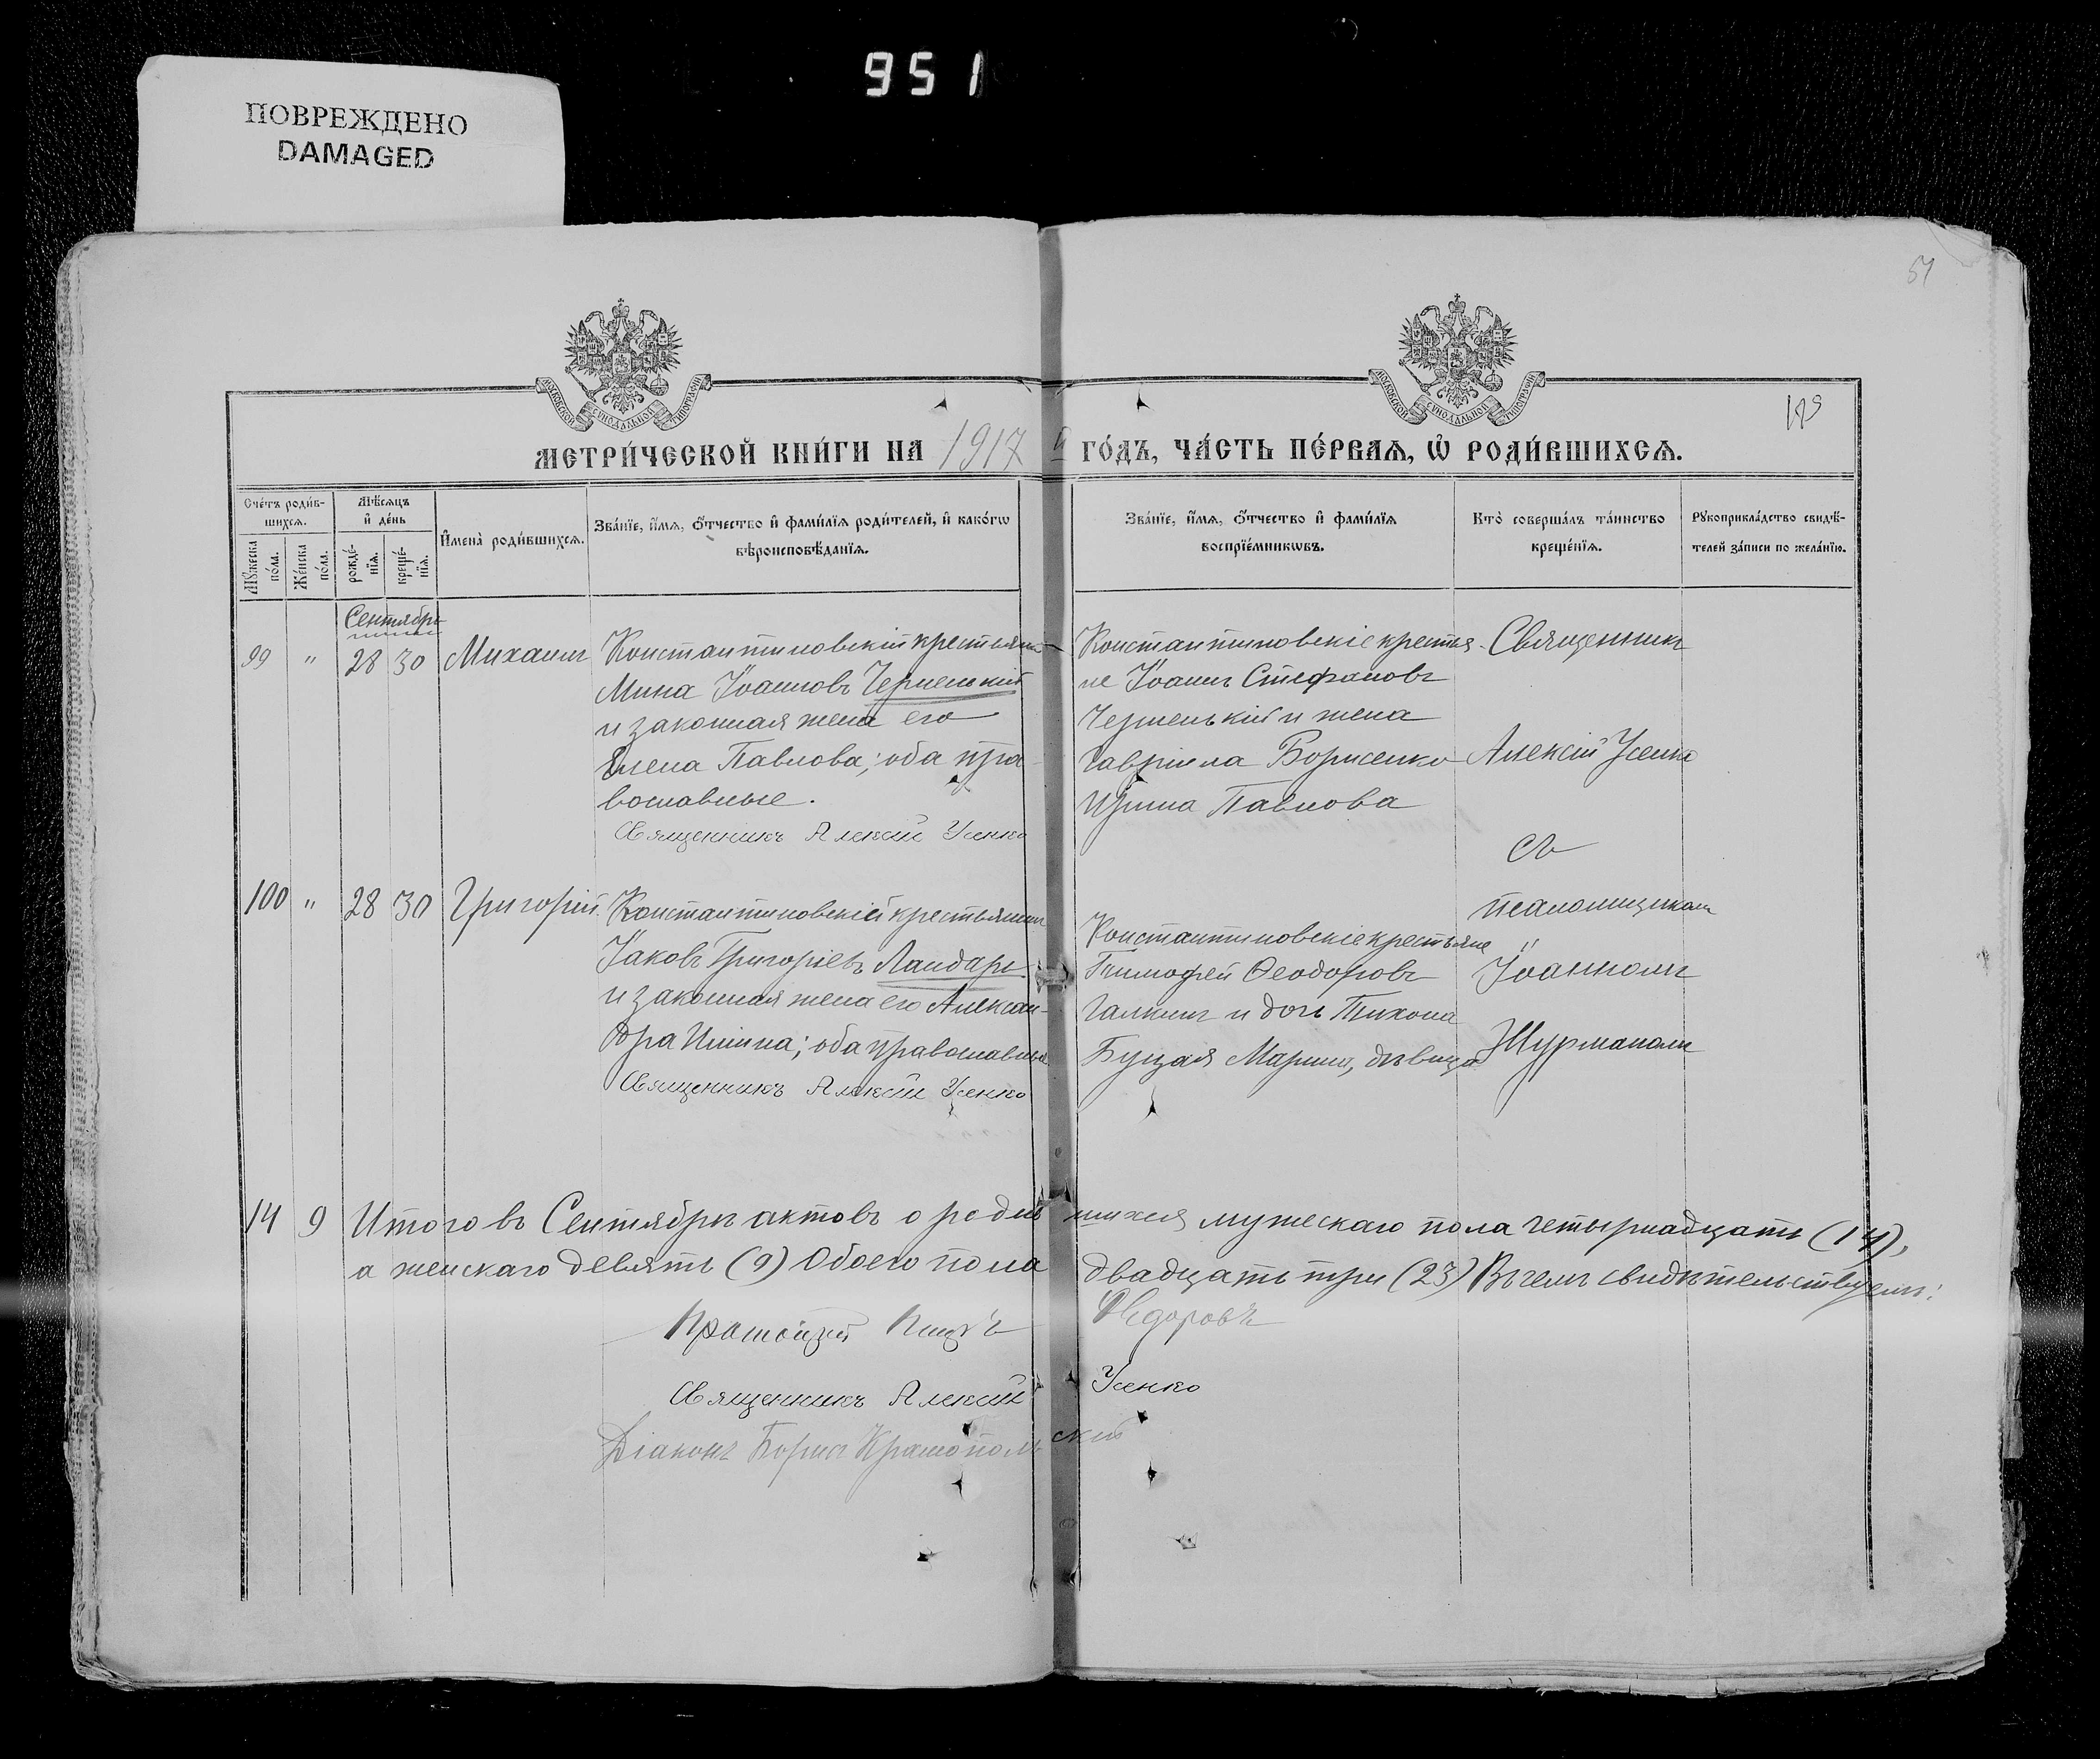 951
ПОВРЕЖДЕНО
DAMAGED
51
МОСКОВСКОЙ СУНОДАЛЬНОЙ ТИПОГРАФИИ
МОСКОВСКОЙ СУНОДАЛЬНОЙ ТИПОГРАФИИ
МЕТРИ́ЧЕСКОЙ КНИ́ГИ НА 1917 й ГО́ДЪ, ЧА́СТЬ ПЕ́РВАѦ, Ѡ҆ РОДИ́ВШИХСѦ.
Сче́тъ роди́в-
шихсѧ.
Мꙋ́жеска по́ла.
Же́нска по́ла.
Мѣ́сѧцъ
и҆ де́нь
рожде́-
нїѧ.
креще́-
нїѧ.
И҆мена̀ роди́вшихсѧ.
Зва́нїе, и҆́мѧ, ѻ҆́тчество и҆ фами́лїѧ роди́телей, и҆ како́гѡ
вѣроисповѣ́данїѧ.
Зва́нїе, и҆́мѧ, ѻ҆́тчество и҆ фами́лїѧ
воспрїе́мникѡвъ.
Кто̀ соверша́лъ та́инство
креще́нїѧ.
Рꙋкоприкла́дство свидѣ́-
телей за́писи по жела́нїю.
Сентябрь
99 " 28 30 Михаилъ
Константиновскій крестьянинъ
Мина Іоанновъ Черненькій
и законная жена его
Елена Павлова; оба пра-
вославные.
Священникъ Алексій Усенко
Константиновскіе крестья-
не Іоаннъ Стефановъ
Черненькій и жена
Гавріила Борисенко
Ирина Павлова
Священникъ
Алексій Усенко
съ
псаломщикомъ
Іоанномъ
Журманомъ
100 " 28 30 Григорій
Константиновскій крестьянинъ
Іаковъ Григоріевъ Ландарь
и законная жена его Алексан-
дра Ильина; оба православные
Священникъ Алексій Усенко
Константиновскіе крестьяне
Тимофей Ѳеодоровъ
Галкинъ и дочь Тихона
Буцкая Марина, дѣвица
14 9 Итого въ Сентябрѣ актовъ о родившихся мужескаго пола четырнадцать (14),
а женскаго девять (9) Обоего пола двадцать три (23) Въ чемъ свидѣтельствуемъ:
Протоіерей Ѳедоровъ
Священникъ Алексій Усенко
Діаконъ Борисъ Краснопольскій